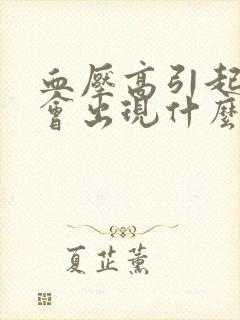 血壓高引起
會出現什麼
夏芷薰